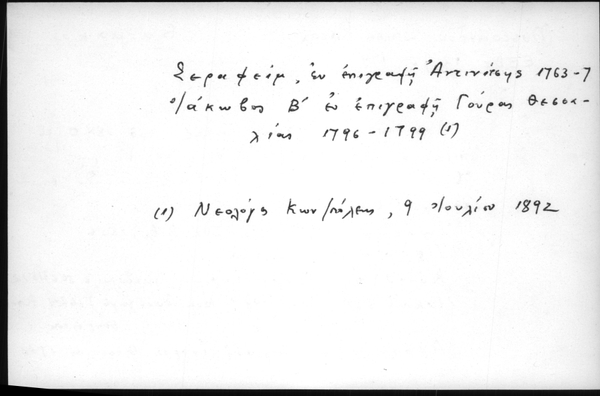 Σεραφείμ, ἐν ἐπιγραφῇ Ἀντινίτσης 1763-7
Ἰάκωβος Β´ ἐν ἐπιγραφῇ Γούρας Θεσσα-
λίας 1796-1799 (1)
(1) Νεολόγος Κων/πόλεως, 9 Ἰουλίου 1892